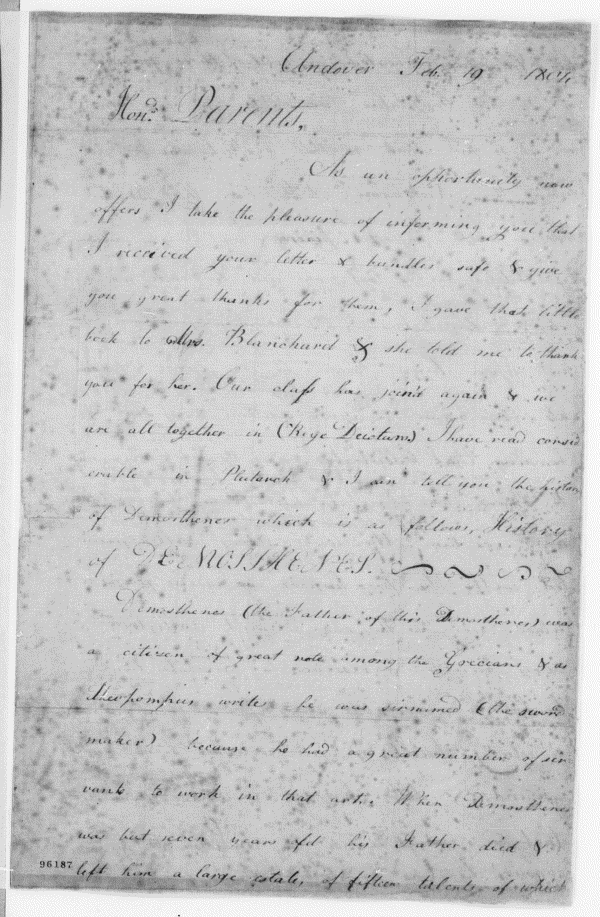 Andover Feb. 19 1804
Hond. Parents,
As an opportunity now
offers I take the pleasure of informing you that
I received your letter & bundles safe & give
you great thanks for them, I gave that little
book to Mrs. Blanchard & she told me to thank
you for her. Our class has joind again & we
are all together in (Rege Deiotaro) I have read consid
erable in Plutarch & I can tell you the histor
of Demosthenes which is as follows, History
of DEMOSTHENES.
Demosthenes (the Father of this Demosthenes) was
a citizen of great note among the Grecians & as
Theopompus writes he was sirnamed (the sword
maker) because he had a great number of ser
vants to work in that art. When Demosthenes
was but seven years old his Father died &
left him a large estate, of fifteen talents of which
96187